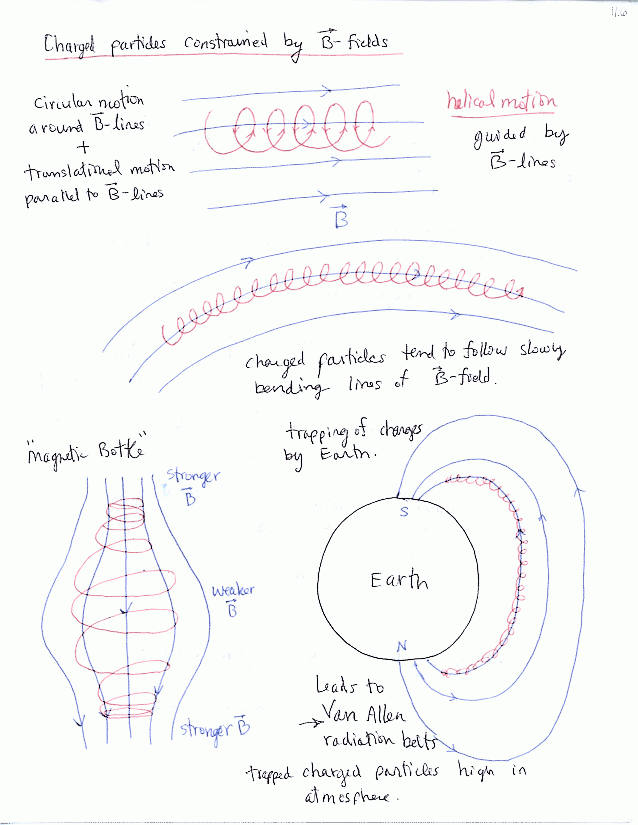 11.6
Charged particles constrained by B-fields
circular motion
around B-lines
+
translational motion
parallel to B-lines
helical motion
guided by
B-lines
B
charged particles tend to follow slowly
bending lines of B-field.
"Magnetic Bottle"
stronger
B
weaker
B
stronger B
trapping of charges
by Earth.
S
Earth
N
Leads to
→ Van Allen
radiation belts
trapped charged particles high in
atmosphere.